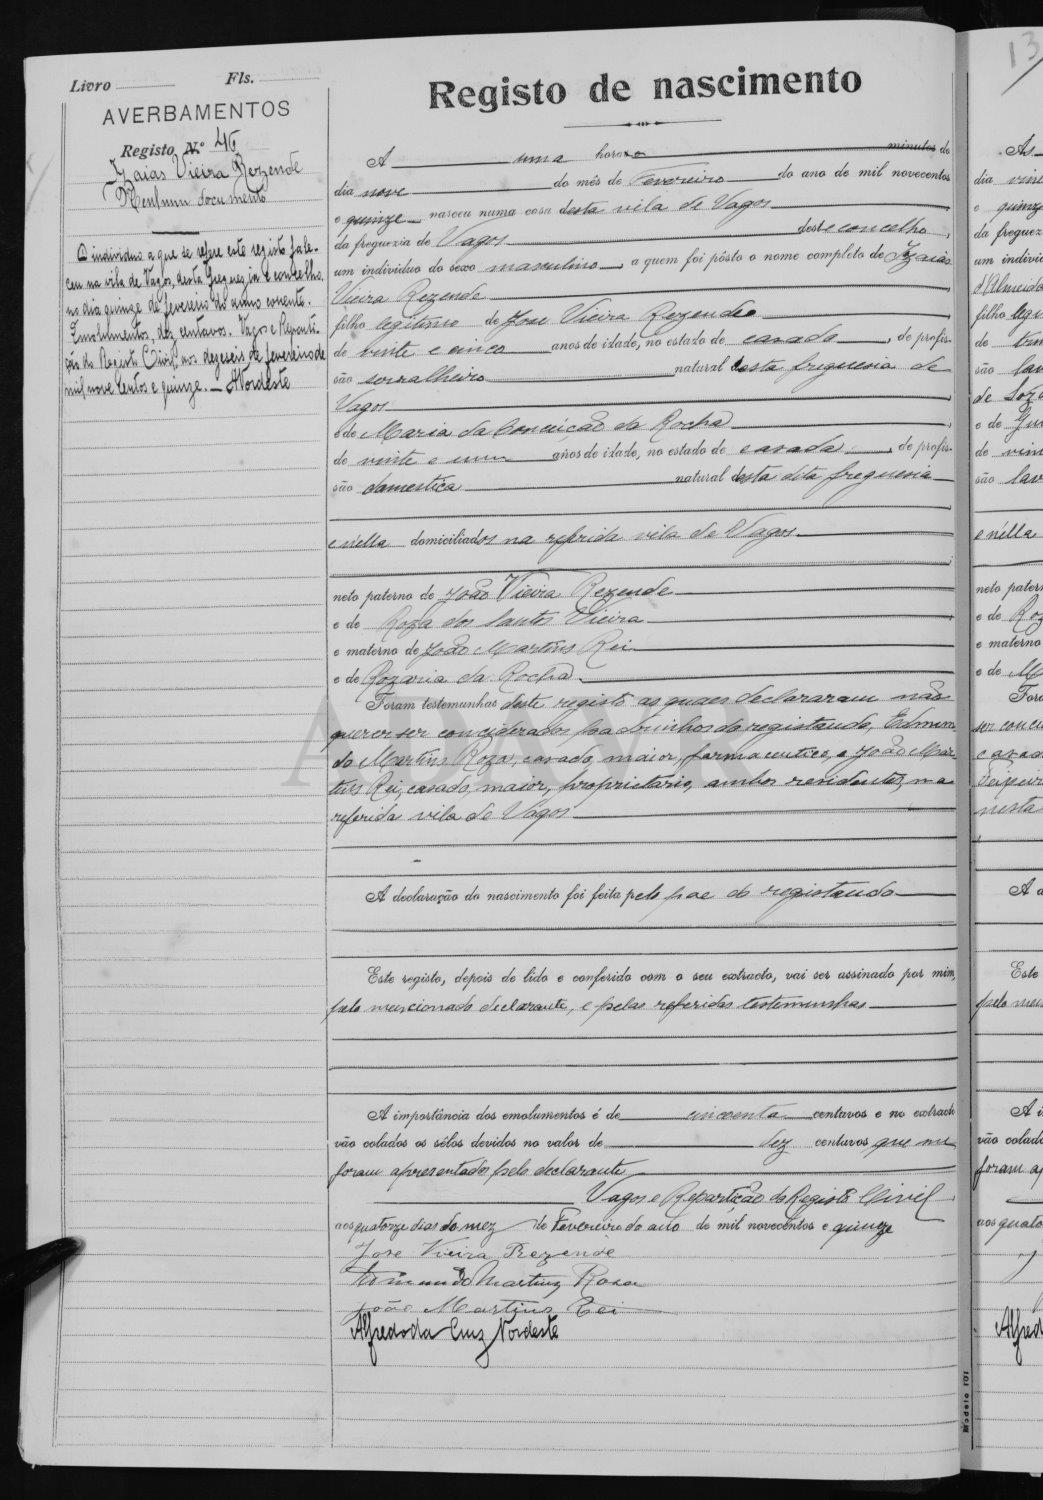 Livro Fls.
AVERBAMENTOS
Registo N.º 46
Izaias Vieira Rezende
Nenhum documento
O individuo a que se refere este registo fale-
ceu na vila de Vagos, desta freguezia e concelho,
no dia quinze de fevereiro do anno corrente.
Emolumentos, dez centavos. Vagos e Reparti-
ção do Registo Civil, aos dezeseis de fevereiro de
mil nove centos e quinze. — ANordeste
Registo de nascimento
A uma hora minutos do
dia nove do mês de Fevereiro do ano de mil novecentos
e quinze nasceu numa casa desta vila de Vagos
da freguezia de Vagos deste concelho,
um individuo do sexo masculino, a quem foi pôsto o nome completo de Izaias
Vieira Rezende
filho legitimo de Jose Vieira Rezende
de vinte e cinco anos de idade, no estado de casado, de profis-
são serralheiro natural desta freguesia de
Vagos
e de Maria da Conceição da Rocha
de vinte e um anos de idade, no estado de casada, de profis-
são domestica natural desta dita freguesia
e n'ella domiciliados na referida vila de Vagos
neto paterno de João Vieira Rezende
e de Roza dos Santos Vieira
e materno de João Martins Rei
e de Rozaria da Rocha.
Foram testemunhas deste registo as quaes declararam não
querer ser conciderados padrinhos do registando, Edmun-
do Martins Roza, casado, maior, farmaceutico, e João Mar-
tins Rei, casado, maior, proprietario, ambos residentes, na
referida vila de Vagos
A declaração do nascimento foi feita pelo pae do registando
Este registo, depois de lido e conferido com o seu extracto, vai ser assinado por mim,
pelo mencionado declarante, e pelas referidas testemunhas
A importância dos emolumentos é de cincoenta centavos e no extracto
vão colados os sêlos devidos no valor de dez centavos que me
foram apresentados pelo declarante
Vagos e Repartição do Registo Civil
aos quatorze dias do mez de Fevereiro do ano de mil novecentos e quinze
Jose Vieira Rezende
Edmundo Martins Rosa
João Martins Rei
Alfredo da Cruz Nordeste
ADAVR
Modelo 101
13
As
dia vint
e quinze
da freguez
um indivi
d'Almeida
filho legi
de trin
são lav
de Soza
e de
de vint
são lav
e n'ella
neto patern
e de Roz
e materno
e de
Fora
ser conci
casado
nesta
A d
Este
pelo men
A i
vão colado
foram ap
aos quato
Alfred